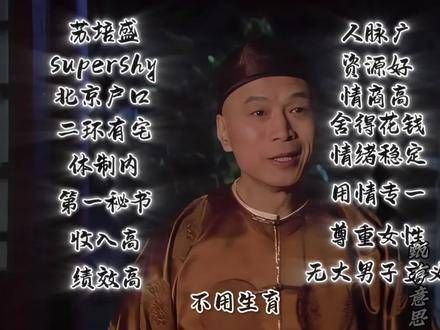 苏培盛
supershy
北京户口
二环有宅
体制内
第一秘书
收入高
绩效高
人脉广
资源好
情商高
舍得花钱
情绪稳定
用情专一
尊重女性
无大男子主义
不用生育